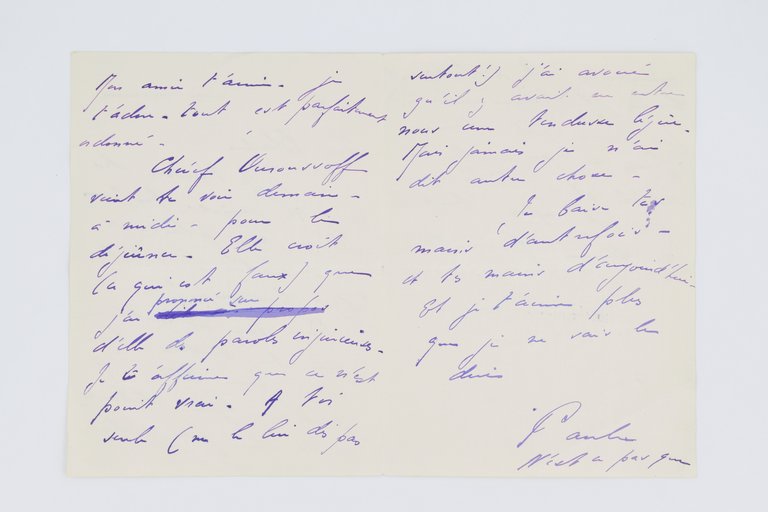 Mon amie t'aime. je
t'adore. tout est parfaitement
ordonné.
Chéref Ourousoff
vient te voir demain.
à midi. pour le
déjeuner. Elle croit
(ce qui est faux) que
j'ai prononcé sur
d'elle des paroles injurieuses.
Je t'affirme que ce n'est
point vrai. A toi
seule (ne le lui dis pas
surtout!) j'ai avoué
qu'il y avait eu entre
nous une tendresse légère.
Mais jamais je n'ai
dit autre chose.
Je baise tes
mains d'autrefois
et tes mains d'aujourd'hui.
Et je t'aime plus
que je ne sais le
dire
Paule
N'est ce pas que